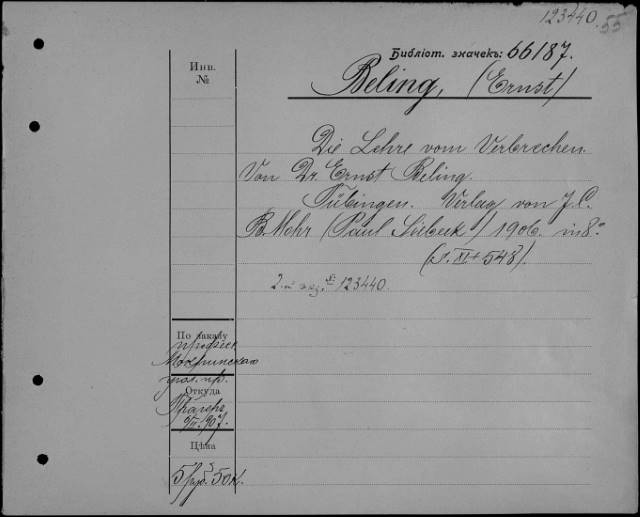 123440.
55
Библіот. значекъ: 66187.
Инв.
№
Beling, (Ernst)
Die Lehre vom Verbrechen.
Von Dr. Ernst Beling.
Tübingen. Verlag von J. C.
B. Mohr (Paul Siebeck) 1906. in 8º
(S. XI + 548).
2-й экз. № 123440.
По заказу
професс.
Мокринскаго
угол. пр.
Откуда
Цѣна
5 руб. 50 к.